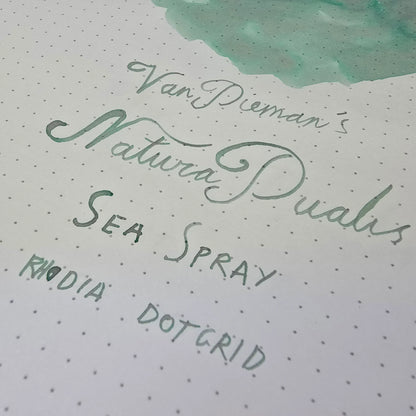 Van Dieman's
Natura Dualis
SEA SPRAY
RHODIA DOTGRID